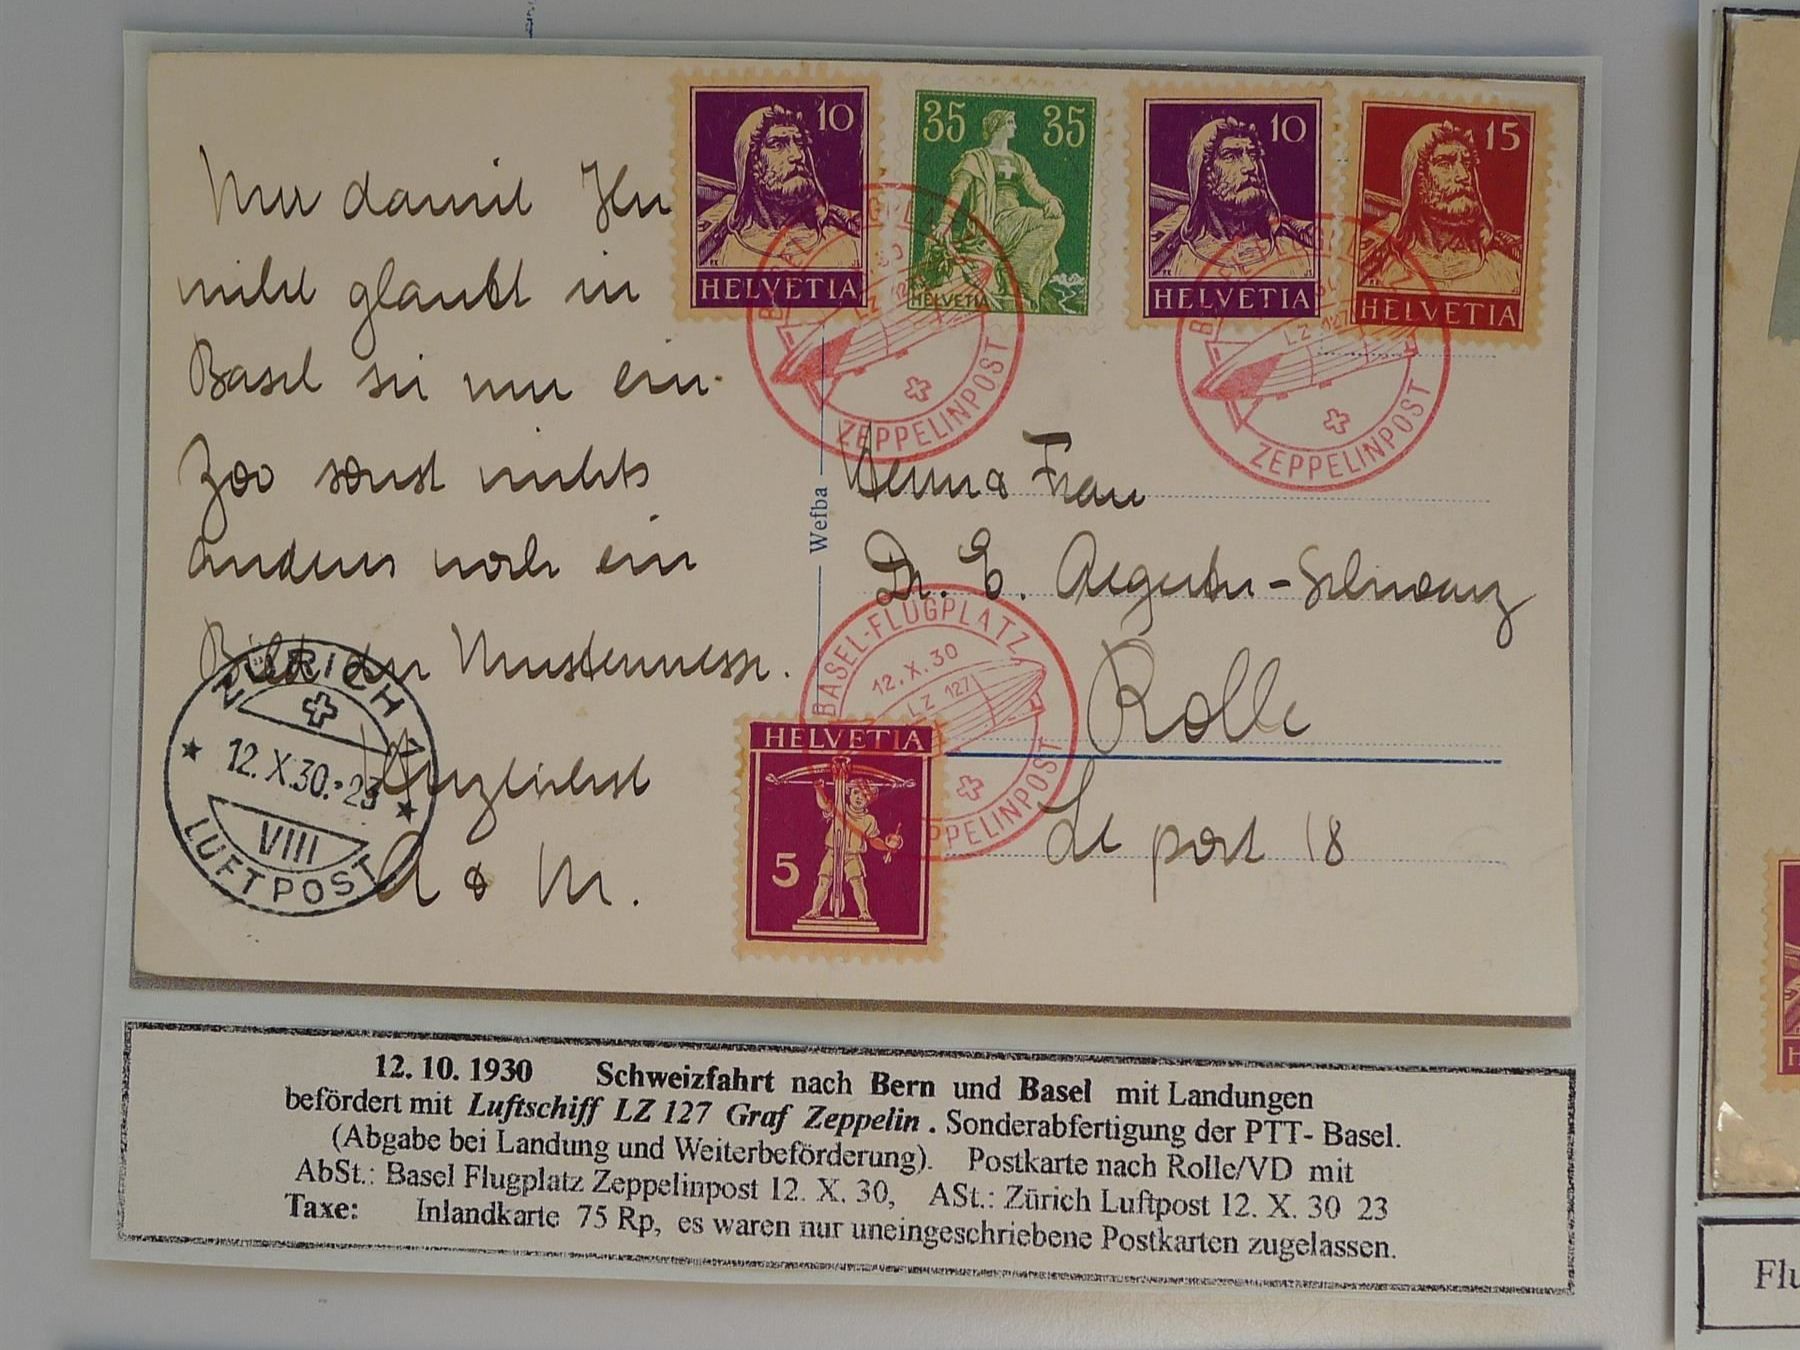 10
HELVETIA
35 35
HELVETIA
10
HELVETIA
15
HELVETIA
Nur damit Ihr
nicht glaubt in
Basel sei nur ein
Zoo sonst nichts
anderes noch ein
Bild der Mustermesse.
Herzlichst
A & M.
Wefba
BASEL-FLUGPLATZ
LZ 127
ZEPPELINPOST
BASEL-FLUGPLATZ
LZ 127
ZEPPELINPOST
Herrn & Frau
Dr. E. Aegerter-Schwarz
Rolle
Le port 18
BASEL-FLUGPLATZ
12.X.30
LZ 127
ZEPPELINPOST
HELVETIA
5
ZÜRICH 1
12.X.30.-23
VIII
LUFTPOST
12. 10. 1930 Schweizfahrt nach Bern und Basel mit Landungen
befördert mit Luftschiff LZ 127 Graf Zeppelin . Sonderabfertigung der PTT- Basel.
(Abgabe bei Landung und Weiterbeförderung). Postkarte nach Rolle/VD mit
AbSt.: Basel Flugplatz Zeppelinpost 12. X. 30, ASt.: Zürich Luftpost 12. X. 30 23
Taxe: Inlandkarte 75 Rp, es waren nur uneingeschriebene Postkarten zugelassen.